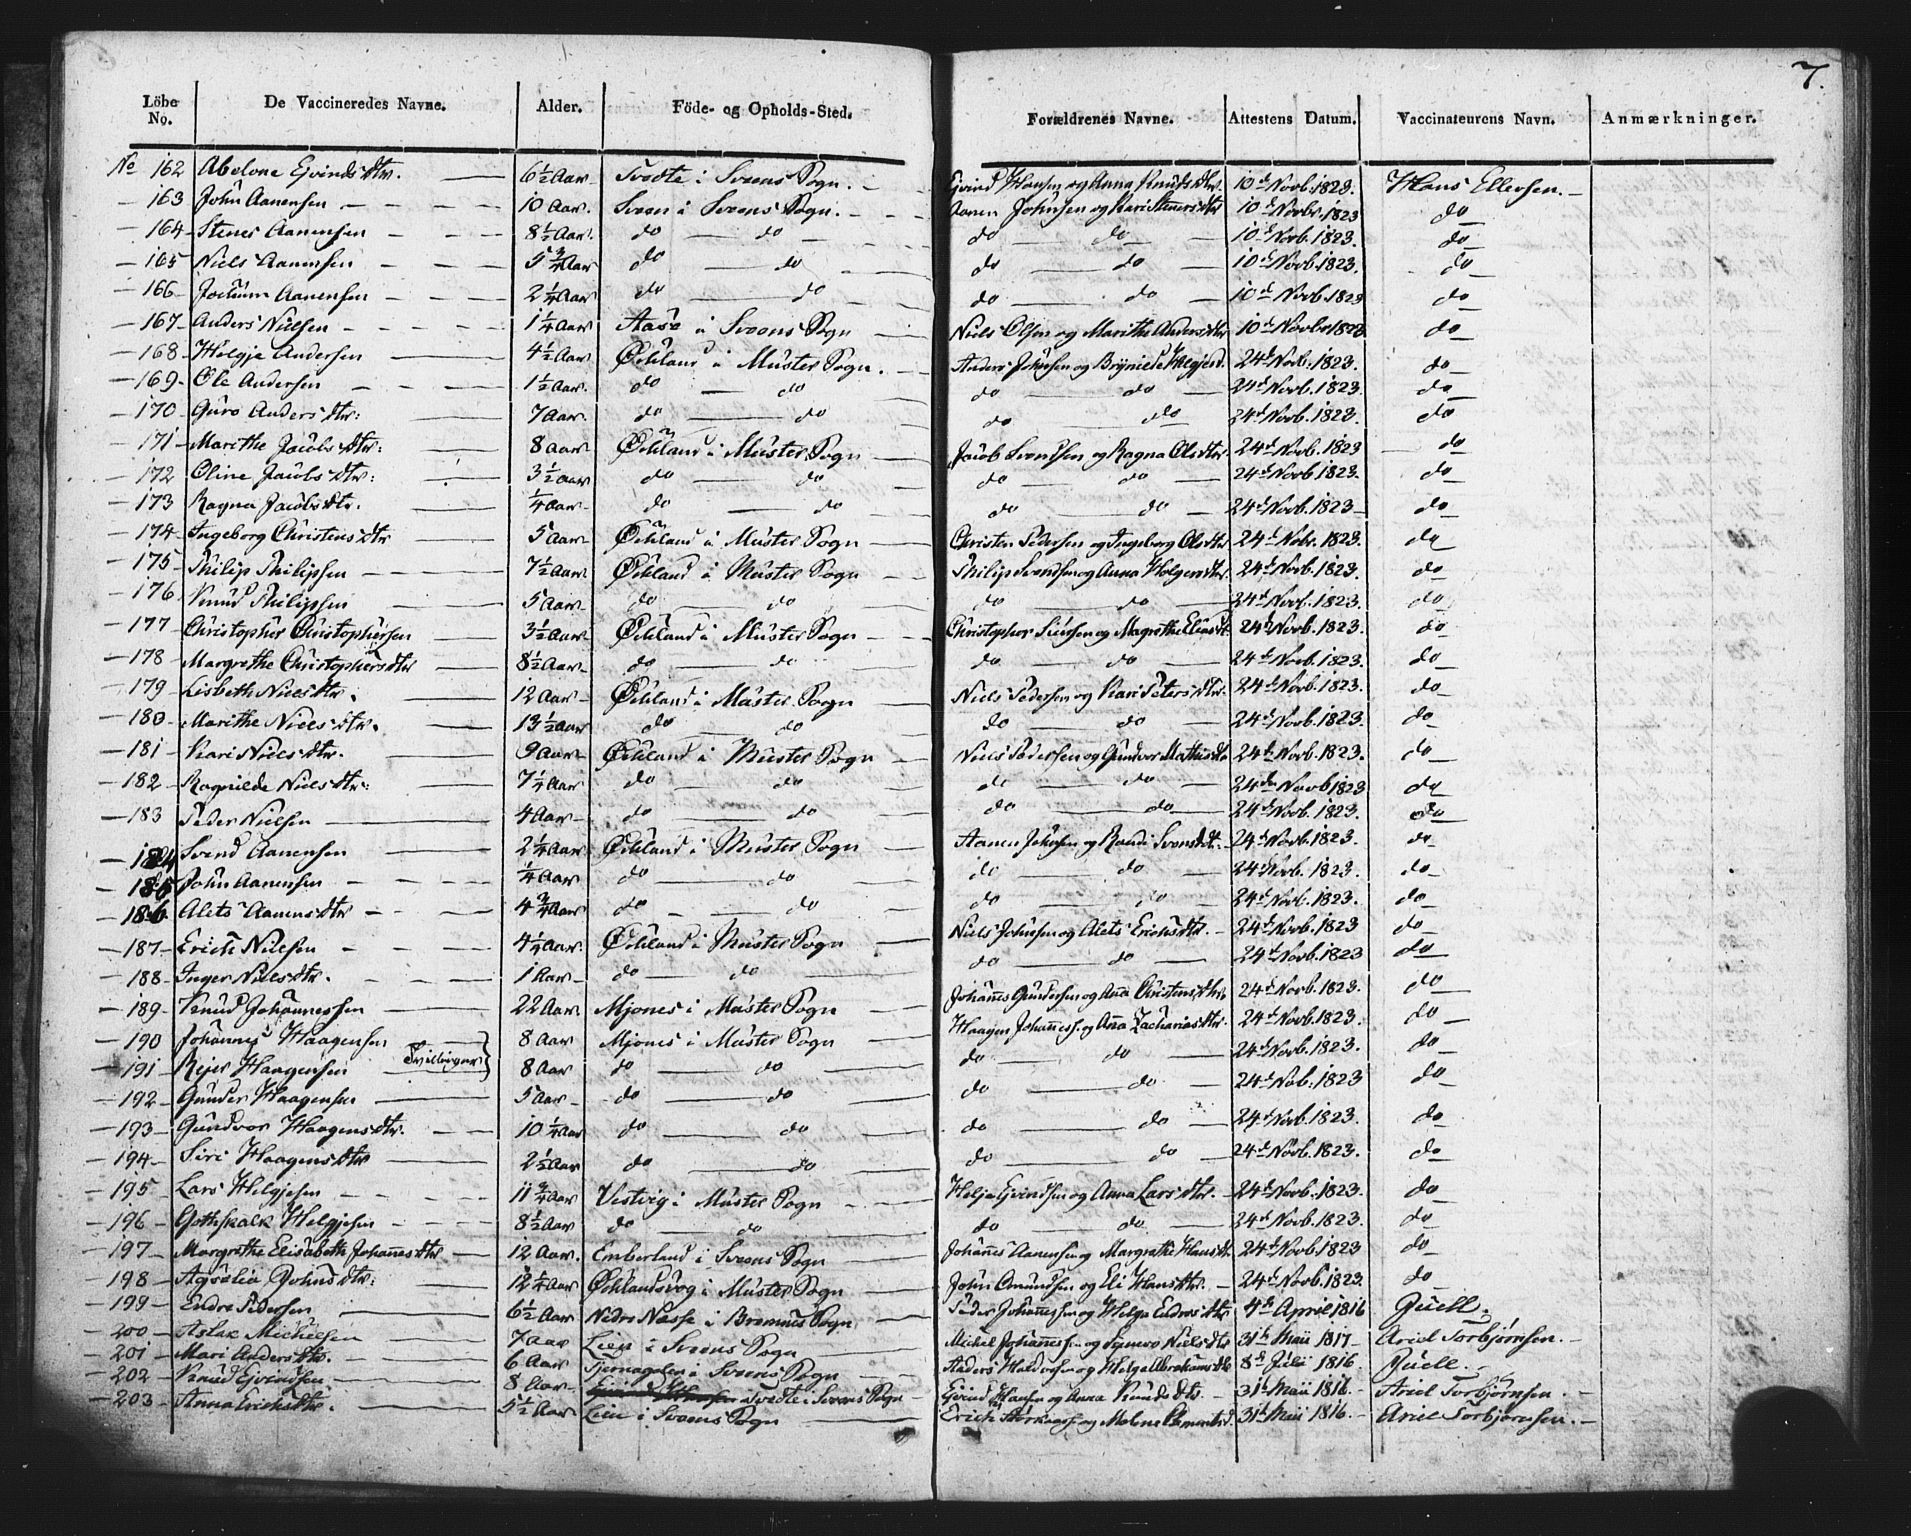 7.
Löbe No. | De Vaccineredes Navne. | Alder. | Föde- og Opholds-Sted. | Forældrenes Navne. | Attestens Datum. | Vaccinateurens Navn. | Anmærkninger.
No 162 Abelone Ejvinds dtr. 6½ Aar Svedte i Sveens Sogn. Ejvind Hansen og Anna Knuds dtr. 10d Novb. 1823. Hans Ellersen.
163 John Aanensen 10 Aar. Sveen i Sveens Sogn. Aanen Johnsen og Kari Steners dtr 10d Novbr. 1823 do
164 Stenes Aanensen 8½ Aar. do do do do 10d Novb. 1823. do
165 Niels Aanensen 5¾ Aar do do do do 10d Novb. 1823. do
166 Jochum Aanensen 2¼ Aar do do do do 10d Novb. 1823 do
167 Anders Nielsen 1¼ Aar Aase i Sveens Sogn Niels Olsen og Marithe Anders dtr 10d Novbr 1823 do
168 Helgje Andersen 4½ Aar Öchland i Müster Sogn. Anders Johnsen og Brynilde Helgjesd. 24d Novb. 1823. do
169 Ole Andersen 1½ Aar. do do do do 24d Novb. 1823 do
170 Guro Anders dtr: 7 Aar do do do do 24d Novb. 1823. do
171 Marithe Jacobs dtr: 8 Aar Öchland i Müster Sogn Jacob Svendsen og Ragna Ols dtr 24d Novb. 1823 do
172 Oline Jacobs dtr: 3½ Aar do do do do 24d Novb. 1823. do
173 Ragna Jacobs dtr. ¼ Aar do do do do 24d Novb. 1823 do
174 Ingeborg Christens dtr 5 Aar Öchland i Müster Sogn Christen Pedersen og Ingeborg Ols dtr 24d Nobr. 1823. do
175 Philip Philipsen 7½ Aar Öchland i Müster Sogn Philip Svendsen og Anna Holgers dtr. 24d Novb. 1823. do
176 Knud Philipsen 5 Aar do do do do 24d Novb. 1823. do
177 Christopher Christophersen 3½ Aar Öchland i Müster Sogn Christopher Siursen og Magrethe Elias dt. 24d Novb. 1823. do
178 Margrethe Christophers dtr 8½ Aar do do do do 24d Novb. 1823. do
179 Lisbeth Niels dtr. 12 Aar Öchland i Müster Sogn Niels Pedersen og Kari Peters dtr. 24d Novb. 1823. do
180 Marithe Niels dtr. 13½ Aar do do do do 24d Novb. 1823. do
181 Kari Niels dtr. 9 Aar Öchland i Müster Sogn Niels Pedersen og Gundvor Mathis dt 24d Novb. 1823. do
182 Ragnilde Niels dtr: 7¼ Aar do do do do 24de Novb 1823. do
183 Peder Nielsen 4 Aar do do do do 24d Novb. 1823. do
184 Svend Aanensen 2¼ Aar Öchland i Müster Sogn Aanen Johnsen og Randi Svends dt. 24d Novb. 1823. do
185 John Aanensen ¼ Aar do do do do 24d Novb. 1823. do
186 Alets Aanens dtr 4¾ Aar do do do do 24d Novb. 1823. do
187 Erich Nielsen 4¼ Aar. Öchland i Müster Sogn Niels Johnsen og Alets Erichs dtr. 24d Novb. 1823 do
188 Inger Niels dtr. 1 Aar do do do do 24d Novb. 1823 do
189 Knud Johannessen 22 Aar Mjones i Müster Sogn Johannes Gundersen og Anna Christens dtr. 24d Novb. 1823. do
190 Johannes Haagensen 8 Aar Mjones i Müster Sogn Haagen Johanness. og Anna Zacharias dtr. 24d Novb. 1823. do
Tvillinger
191 Reier Haagensen 8 Aar do do do do 24d Novb. 1823. do
192 Gunder Haagensen 5 Aar do do do do 24d Nob. 1823 do
193 Gundvor Haagens dtr. 10¼ Aar do do do do 24d Novb. 1823. do
194 Siri Haagens dtr 2½ Aar do do do do 24d Novb. 1823. do
195 Lars Helgjesen 11¾ Aar Vestvig i Müster Sogn Helje Ejvindsen og Anna Lars dtr. 24d Novb. 1823. do
196 Gothskalk Helgjesen 8½ Aar do do do do 24d Novb. 1823. do
197 Margrethe Elisabeth Johannes dtr 12 Aar. Emberland i Sveens Sogn Johannes Aanensen og Margrethe Hans dt. 24d Novb. 1823 do
198 Agselia Johns dtr: 12¼ Aar Öchlandsvog i Müster Sogn John Omundsen og Eli Hans dtr. 24d Novb. 1823. do
199 Endre Pedersen 6½ Aar Nedre Næsse i Bremnes Sogn Peder Johannesen og Helga Endres dtr 4de April 1816 Juell.
200 Aslak Michelsen 7 Aar Lien i Sveens Sogn Michel Johannesen og Synevo Niels dtr 31te Maii 1817 Ariel Torbjörnsen.
201 Mari Anders dtr. 6 Aar Tjernagelen i Sveens Sogn Anders Haldorsen og Helga Abrahams dtr 8de Juli 1816. Juell.
202 Knud Ejvindsen 8 Aar Svedte i Sveens Sogn Ejvind Hansen og Anna Knuds dtr. 31te Maii 1816. Ariel Torbjörnsen.
203 Anna Erichs dtr. 5½ Aar. Lien i Sveens Sogn Erich og Malene 31te Maii 1816. Ariel Torbjörnsen.